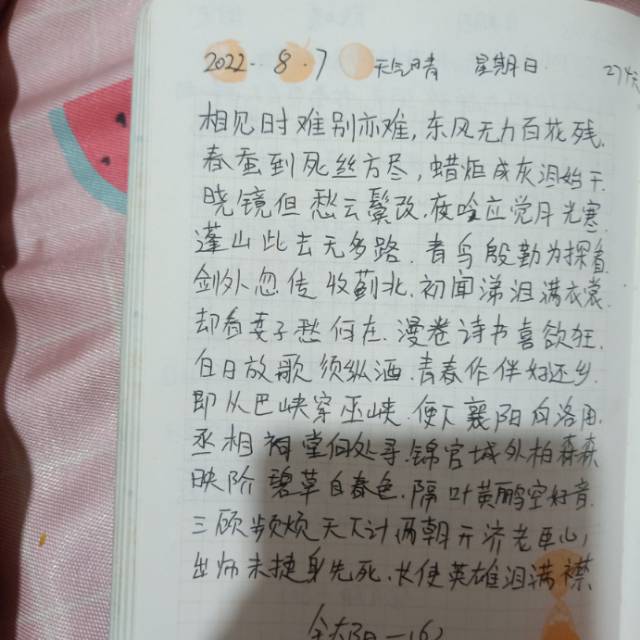 2022.8.7 天气晴 星期日
相见时难别亦难,东风无力百花残.
春蚕到死丝方尽,蜡炬成灰泪始干.
晓镜但愁云鬓改.夜吟应觉月光寒.
蓬山此去无多路.青鸟殷勤为探看
剑外忽传收蓟北.初闻涕泪满衣裳.
却看妻子愁何在.漫卷诗书喜欲狂.
白日放歌须纵酒.青春作伴好还乡.
即从巴峡穿巫峡.便下襄阳向洛阳.
丞相祠堂何处寻.锦官城外柏森森
映阶碧草自春色.隔叶黄鹂空好音.
三顾频烦天下计两朝开济老臣心,
出师未捷身先死.长使英雄泪满襟